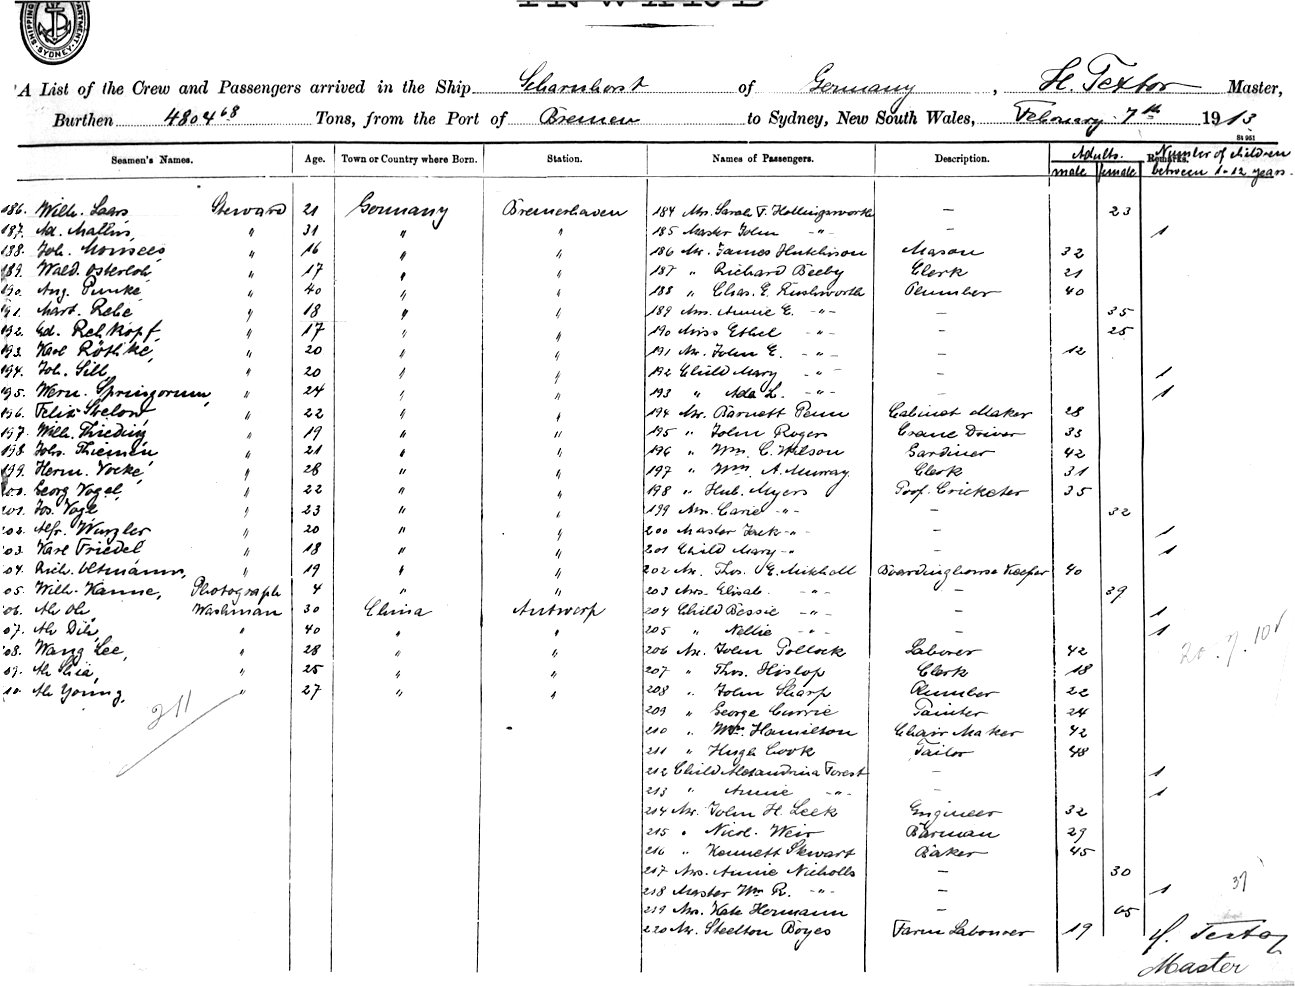 SHIPPING DEPARTMENT SYDNEY
INWARD
A List of the Crew and Passengers arrived in the Ship Scharnhorst of Germany, H. Textor Master,
Burthen 4804 68 Tons, from the Port of Bremen to Sydney, New South Wales, February 7th 1913
St 951
Seamen's Names. Age. Town or Country where Born. Station. Names of Passengers. Description. Adults. male female Remarks. Number of children between 1-12 years.
186. Wilh. Laars Steward 21 Germany Bremerhaven 184 Mrs. Sarah T. Hollingsworth — 23
187. Ad. Mallis, " 31 " " 185 Master John -"- — 1
188. Joh. Monsees " 16 " " 186 Mr. James Hutchison Mason 32
189. Wald. Osterloh, " 17 " " 187 " Richard Beeby Clerk 21
190. Aug. Punke, " 40 " " 188 " Chas. E. Rushworth Plumber 40
191. Mart. Rebe " 18 " " 189 Mrs. Annie E. -"- — 35
192. Ed. Rehkopf, " 17 " " 190 Miss Ethel -"- — 25
193. Karl Röthke, " 20 " " 191 Mr. John E. -"- — 12
194. Joh. Sill, " 20 " " 192 Child Mary -"- — 1
195. Wern. Springorum, " 24 " " 193 " Ada L. -"- — 1
196. Felix " 22 " " 194 Mr. Barnett Penn Cabinet Maker 28
197. Wilh. Thieding " 19 " " 195 " John Rogers Crane Driver 33
198. Johs. Thiemen " 21 " " 196 " Wm. C. Wilson Gardiner 42
199. Herm. Vocke, " 28 " " 197 " Wm. A. Murray Clerk 31
200. Georg Vogel, " 22 " " 198 " Hub. Myers Prof. Cricketer 35
201. Jos. Vogl " 23 " " 199 Mrs. Carie -"- — 32
202. Alfr. Wurzler " 20 " " 200 Master Jack -"- — 1
203. Karl Friedel " 18 " " 201 Child Mary -"- — 1
204. Rich. Oltmanns, " 19 " " 202 Mr. Thos. E. Mitchell Boardinghouse Keeper 40
205. Wilh. Kanne, Photograph 4 " " 203 Mrs. Elisab. -"- — 39
206. Ah Oh, Washman 30 China Antwerp 204 Child Bessie -"- — 1
207. Ah Dih, " 40 " " 205 " Nellie -"- — 1
208. Wang Lee, " 28 " " 206 Mr. John Pollock Laborer 42
209. Ah Shia, " 25 " " 207 " Thos. Hislop Clerk 18
210. Ah Young, " 27 " " 208 " John Sharp Plumber 22
209 " George Currie Painter 24
211
210 " Wm. Hamilton Chair Maker 42
211 " Hugh Cook Tailor 48
212 Child Alexandrina Forest — 1
213 " Annie -"- — 1
214 Mr. John H. Leek Engineer 32
215 " Nicol. Weir Barman 29
216 " Kennett Stewart Baker 45
217 Mrs. Annie Nicholls — 30
218 Master Wm R. -"- — 1
219 Mrs. Kate Hermann — 65
220 Mr. Steelton Boyes Farm Labourer 19
H. Textor
Master